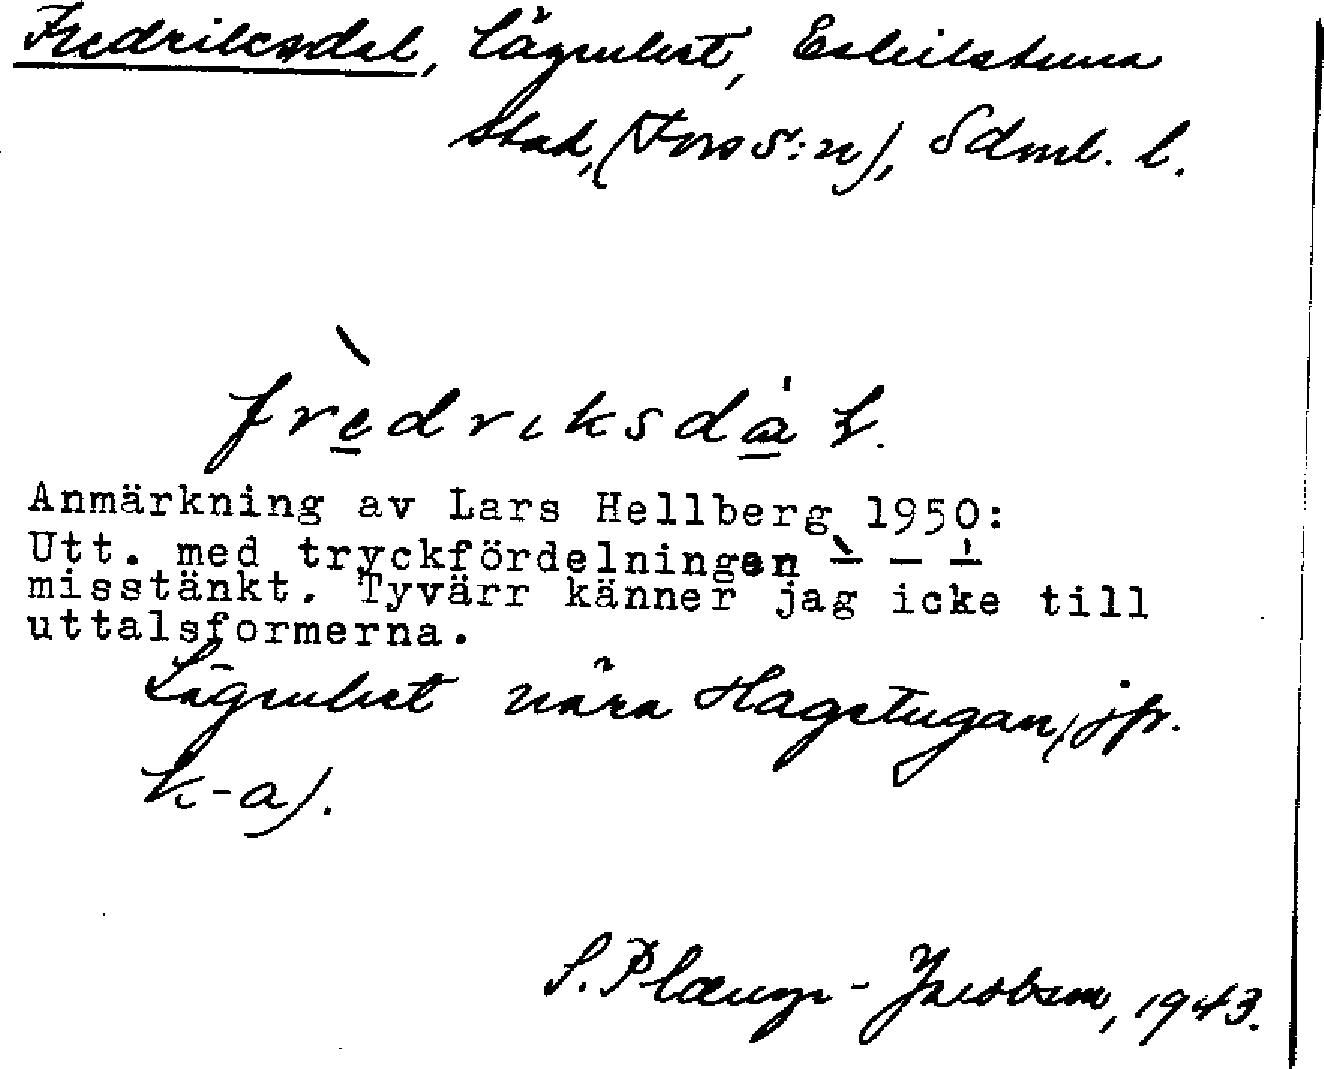 Fredriksdal, Lägenhet, Eskilstuna
stad, (Fors s:n), Sdml. l.
frèdriksdá l.
Anmärkning av Lars Hellberg 1950:
Utt. med tryckfördelningen ˋ – ˈ
misstänkt. Tyvärr känner jag icke till
uttalsformerna.
Lägenhet nära Hagstugan, jfr.
k-a).
S. Plænge-Jacobson, 1943.